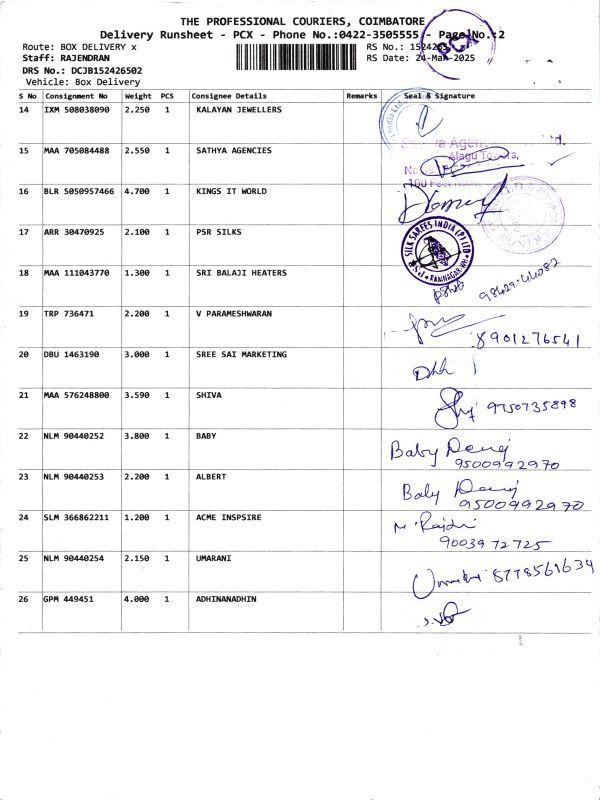 THE PROFESSIONAL COURIERS, COIMBATORE
Delivery Runsheet - PCX - Phone No.:0422-3505555 - Page No.:2
Route: BOX DELIVERY x
Staff: RAJENDRAN
DRS No.: DCJB152426502
Vehicle: Box Delivery
RS No.: 1524265
RS Date: 24-Mar-2025
PCX
S No Consignment No Weight PCS Consignee Details Remarks Seal & Signature
14 IXM 508038090 2.250 1 KALAYAN JEWELLERS
India Ltd.
15 MAA 705084488 2.550 1 SATHYA AGENCIES
Alagu Towers,
100 Feet
16 BLR 5050957466 4.700 1 KINGS IT WORLD
17 ARR 30470925 2.100 1 PSR SILKS
SILK SAREES INDIA (P) LTD
18 MAA 111043770 1.300 1 SRI BALAJI HEATERS
98429-44082
19 TRP 736471 2.200 1 V PARAMESHWARAN
8901276541
20 DBU 1463190 3.000 1 SREE SAI MARKETING
21 MAA 576248800 3.590 1 SHIVA
9750735898
22 NLM 90440252 3.800 1 BABY
Baby
9500992970
23 NLM 90440253 2.200 1 ALBERT
Baby
9500992970
24 SLM 366862211 1.200 1 ACME INSPSIRE
9003972725
25 NLM 90440254 2.150 1 UMARANI
8778561634
26 GPM 449451 4.000 1 ADHINANADHIN